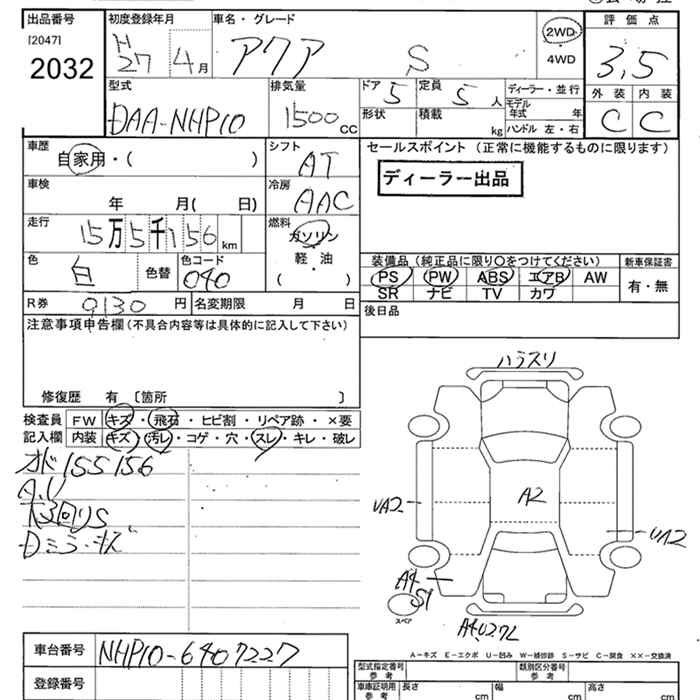 出品番号 初度登録年月 車名・グレード 評価点
[2047]
2032
H27 4月 アクア S 2WD 4WD 3,5
型式 排気量 ドア 定員 ディーラー・並行 外装 内装
DAA-NHP10 1500 CC 5 5人 C C
形状 積載 kg
モデル年式 年
ハンドル 左・右
車歴 自家用・( ) シフト AT
車検 年 月( 日) 冷房 AAC
走行 15万5千156 km 燃料 ガソリン 軽・油 ( )
色 白 色替 色コード 040
R券 9130 円 名変期限 月 日
セールスポイント(正常に機能するものに限ります)
ディーラー出品
装備品(純正品に限り〇をつけてください) 新車保証書
PS PW ABS エアB AW 有・無
SR ナビ TV カワ
後日品
注意事項申告欄(不具合内容等は具体的に記入して下さい)
修復歴 有〔箇所 〕
検査員 FW キズ・飛石・ヒビ割・リペア跡・×要
記入欄 内装 キズ・汚レ・コゲ・穴・スレ・キレ・破レ
オド155156
A,U
下回りS
Dミラーキズ
ハラスリ
A2
UA2
UA2
A4
S1
スペア
A4U27L
車台番号 NHP10-6407227
登録番号
A-キズ E-エクボ U-凹み W-補修跡 S-サビ C-腐食 ××-交換済
型式指定番号 参考 類別区分番号 参考
車庫証明用 参考 長さ cm 幅 cm 高さ cm